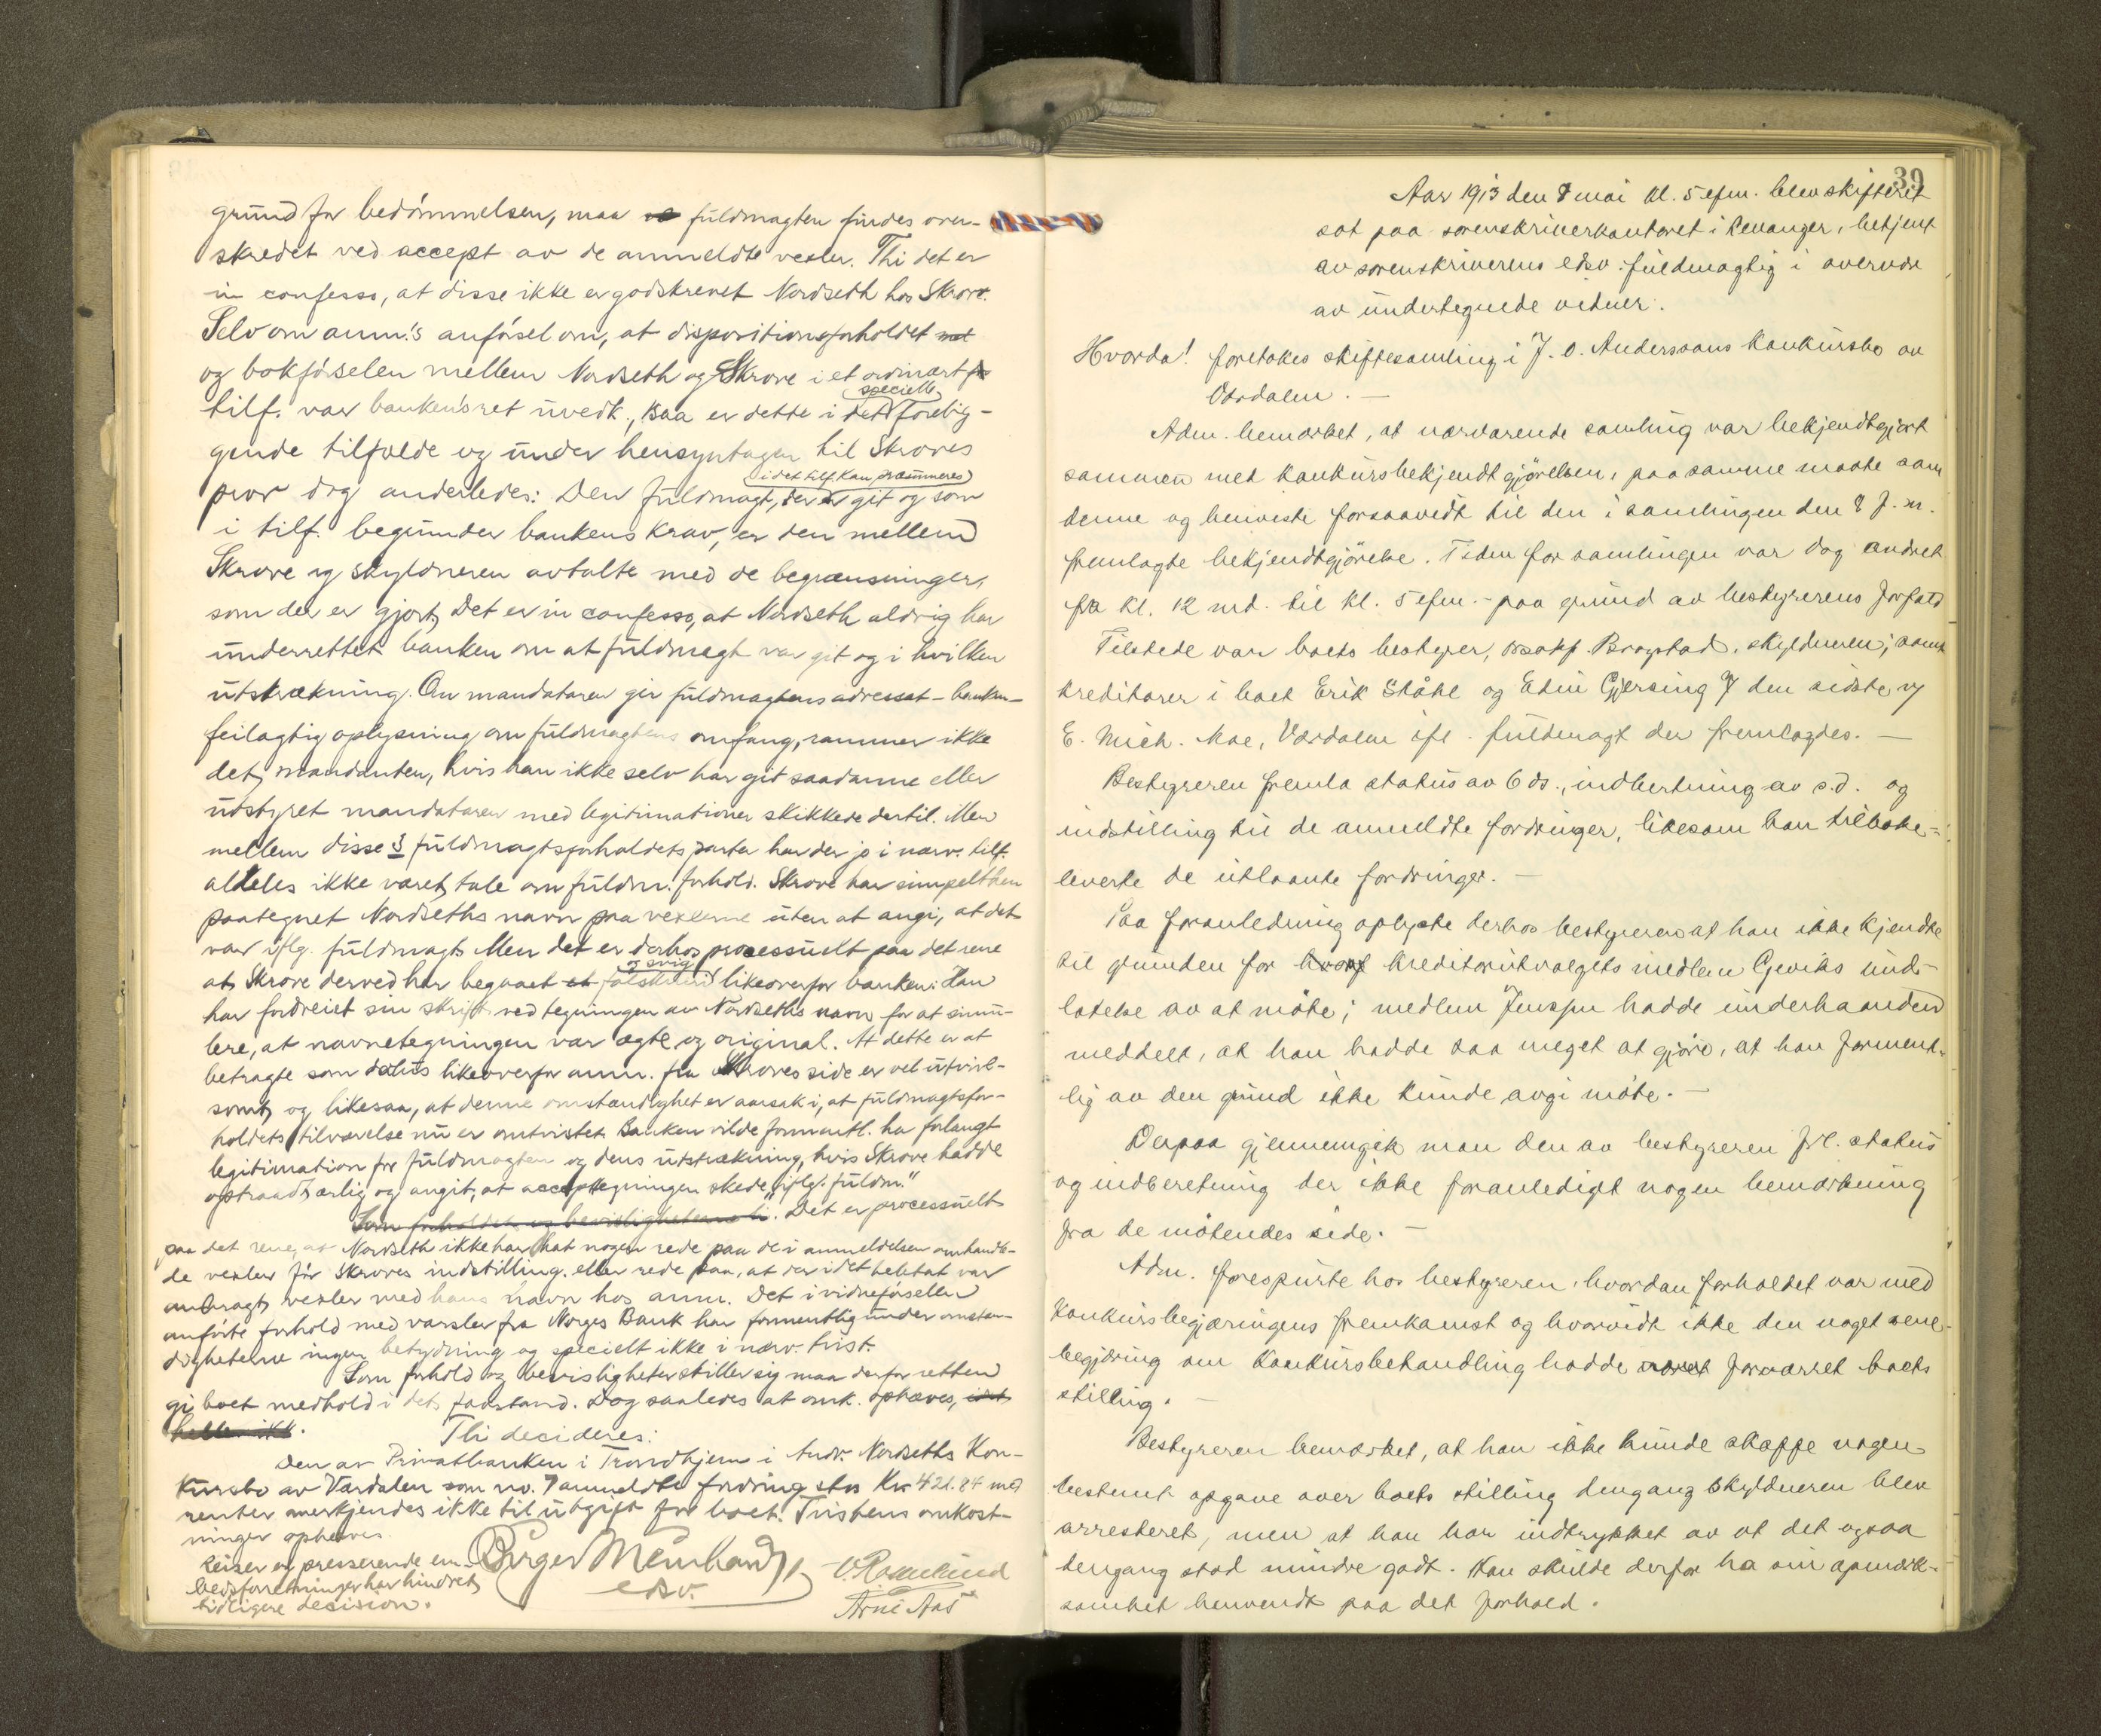 grund for bedömmelsen, maa fuldmagten findes over-
skredet ved accept av de anmeldte vexler. Thi det er
in confesso, at disse ikke er godskrevet Nordseth hos Skrove.
Selv om anm.'s anförsel om, at dispositionsforholdet
og bokförselen mellem Nordseth og Skrove i et ordinært
tilf. var banken's ret uvedk., saa er dette i det specielle forelig-
gende tilfælde og under hensyntagen til Skroves
prov dog anderledes: Den fuldmagt, der i det tilf. kan præsumeres git og som
i tilf. begrunder bankens krav, er den mellem
Skrove og skyldneren avtalte med de begrænsninger,
som der er gjort. Det er in confesso, at Nordseth aldrig har
underrettet banken om at fuldmagt var git og i hvilken
utstrækning. Om mandataren gir fuldmagtens adressat - banken -
feilagtig oplysning om fuldmagtens omfang, rammer ikke
det mandanten, hvis han ikke selv har git saadanne eller
utstyret mandataren med legitimationer skikkede dertil. Men
mellem disse 3 fuldmagtsforholdets parter har der jo i nærv. tilf.
aldeles ikke været tale om fuldm. forhold. Skrove har simpelthen
paategnet Nordseths navn paa vexlerne uten at angi, at det
var iflg. fuldmagt. Men det er derhos processuelt paa det rene
at Skrove derved har begaaet og svig likeoverfor banken: Han
har fordreiet sin skrift ved tegningen av Nordseths navn for at simu-
lere, at navnetegningen var ægte og original. At dette er at
betragte som dolus likeoverfor anm. fra Skroves side er vel utvivl-
somt, og likesaa, at denne omstændighet er aarsak i, at fuldmagtsfor-
holdets tilværelse nu er omtvistet. Banken vilde formentl. ha forlangt
legitimation for fuldmagten og dens utstrækning, hvis Skrove hadde
optraadt ærlig og angit, at accepttegningen skede "iflg. fuldm."
Det er processuelt
paa det rene, at Nordseth ikke har hat nogen rede paa de i anmeldelsen omhandle-
de vexler för Skroves indstilling, eller rede paa, at der i det heletat var
anbragt vexler med hans navn hos anm. Det i vidneförselen
anförte forhold med varsler fra Norges Bank har formentlig under omstæn-
dighetene ingen betydning og specielt ikke i nærv. tvist.
Som forhold og bevisligheter stiller sig maa derfor retten
gi boet medhold i dets paastand. Dog saaledes at omk. ophæves,
Thi decideres:
Den av Privatbanken i Trondhjem i Andr. Nordseths Kon-
kursbo av Værdalen som no. 7 anmeldte fordring stor Kr 421.84 med
renter anerkjendes ikke til utgift for boet. Tvistens omkost-
ninger ophæves.
Reiser og presserende em-
bedsforretninger har hindret
tidligere decision.
Birger Meinhardt
edsv.
O. Rosenlund
Arne Aas
39
Aar 1913 den 7 mai kl. 5 efm. blev skifteret
sat paa sorenskriverkontoret i Levanger, betjent
av sorenskriverens edsv. fuldmægtig i overvær
av undertegnede vidner.
Hvorda! foretokes skiftesamling i J. O. Anderssons konkursbo av
Værdalen. —
Adm. bemærket, at nærværende samling var bekjendtgjort
sammen med konkursbekjendtgjörelsen, paa samme maate som
denne og henviste forsaavidt til den i samlingen den 8 f. m.
fremlagte bekjendtgjörelse. Tiden for samlingen var dog ændret
fra kl. 12 md. til kl. 5 efm. - paa grund av bestyrerens forfald
Tilstede var boets bestyrer, o.r.sakf. Bragstad, skyldneren, samt
kreditorer i boet Erik Ståhl og Edin Gjersing f den sidste og
E. Mich. Moe, Værdalen ifl. fuldmagt der fremlagdes. —
Bestyreren fremla status av 6 ds., indberetning av s.d. og
indstilling til de anmeldte fordringer, likesom han tilbake=
leverte de utlaante fordringer. —
Paa foranledning oplyste derhos bestyreren at han ikke kjendte
til grunden for kreditorutvalgets medlem Geviks und-
latelse av at möte; medlem Jenssen hadde underhaanden
meddelt, at han hadde saa meget at gjöre, at han forment-
lig av den grund ikke kunde avgi möte. —
Derpaa gjennemgik man den av bestyreren frl. status
og indberetning der ikke foranlediget nogen bemærkning
fra de mötendes side. —
Adm. forespurte hos bestyreren, hvordan forholdet var med
konkursbegjæringens fremkomst og hvorvidt ikke den noget sene
begjæring om konkursbehandling hadde forværret boets
stilling. —
Bestyreren bemærket, at han ikke kunde skaffe nogen
bestemt opgave over boets stilling dengang skyldneren blev
arresteret, men at han har indtrykket av at det ogsaa
dengang stod mindre godt. Han skulde derfor ha sin opmerk-
somhet henvendt paa det forhold.